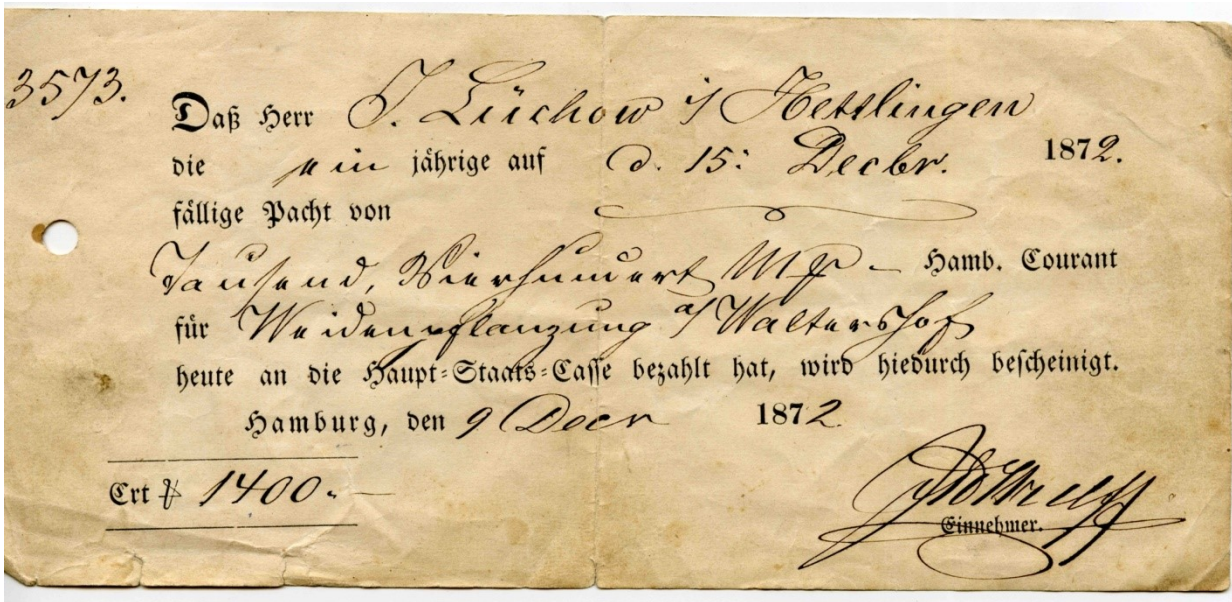 3573.
Daß Herr J. Lüchow i/ Hettlingen
die ein jährige auf d. 15: Decbr. 1872.
fällige Pacht von
Tausend, Vierhundert Mk – Hamb. Courant
für Weidenpflanzung a/ Waltershof
heute an die Haupt-Staats-Casse bezahlt hat, wird hiedurch bescheinigt.
Hamburg, den 9 Decr 1872.
Crt ₰ 1400.–
Einnehmer.